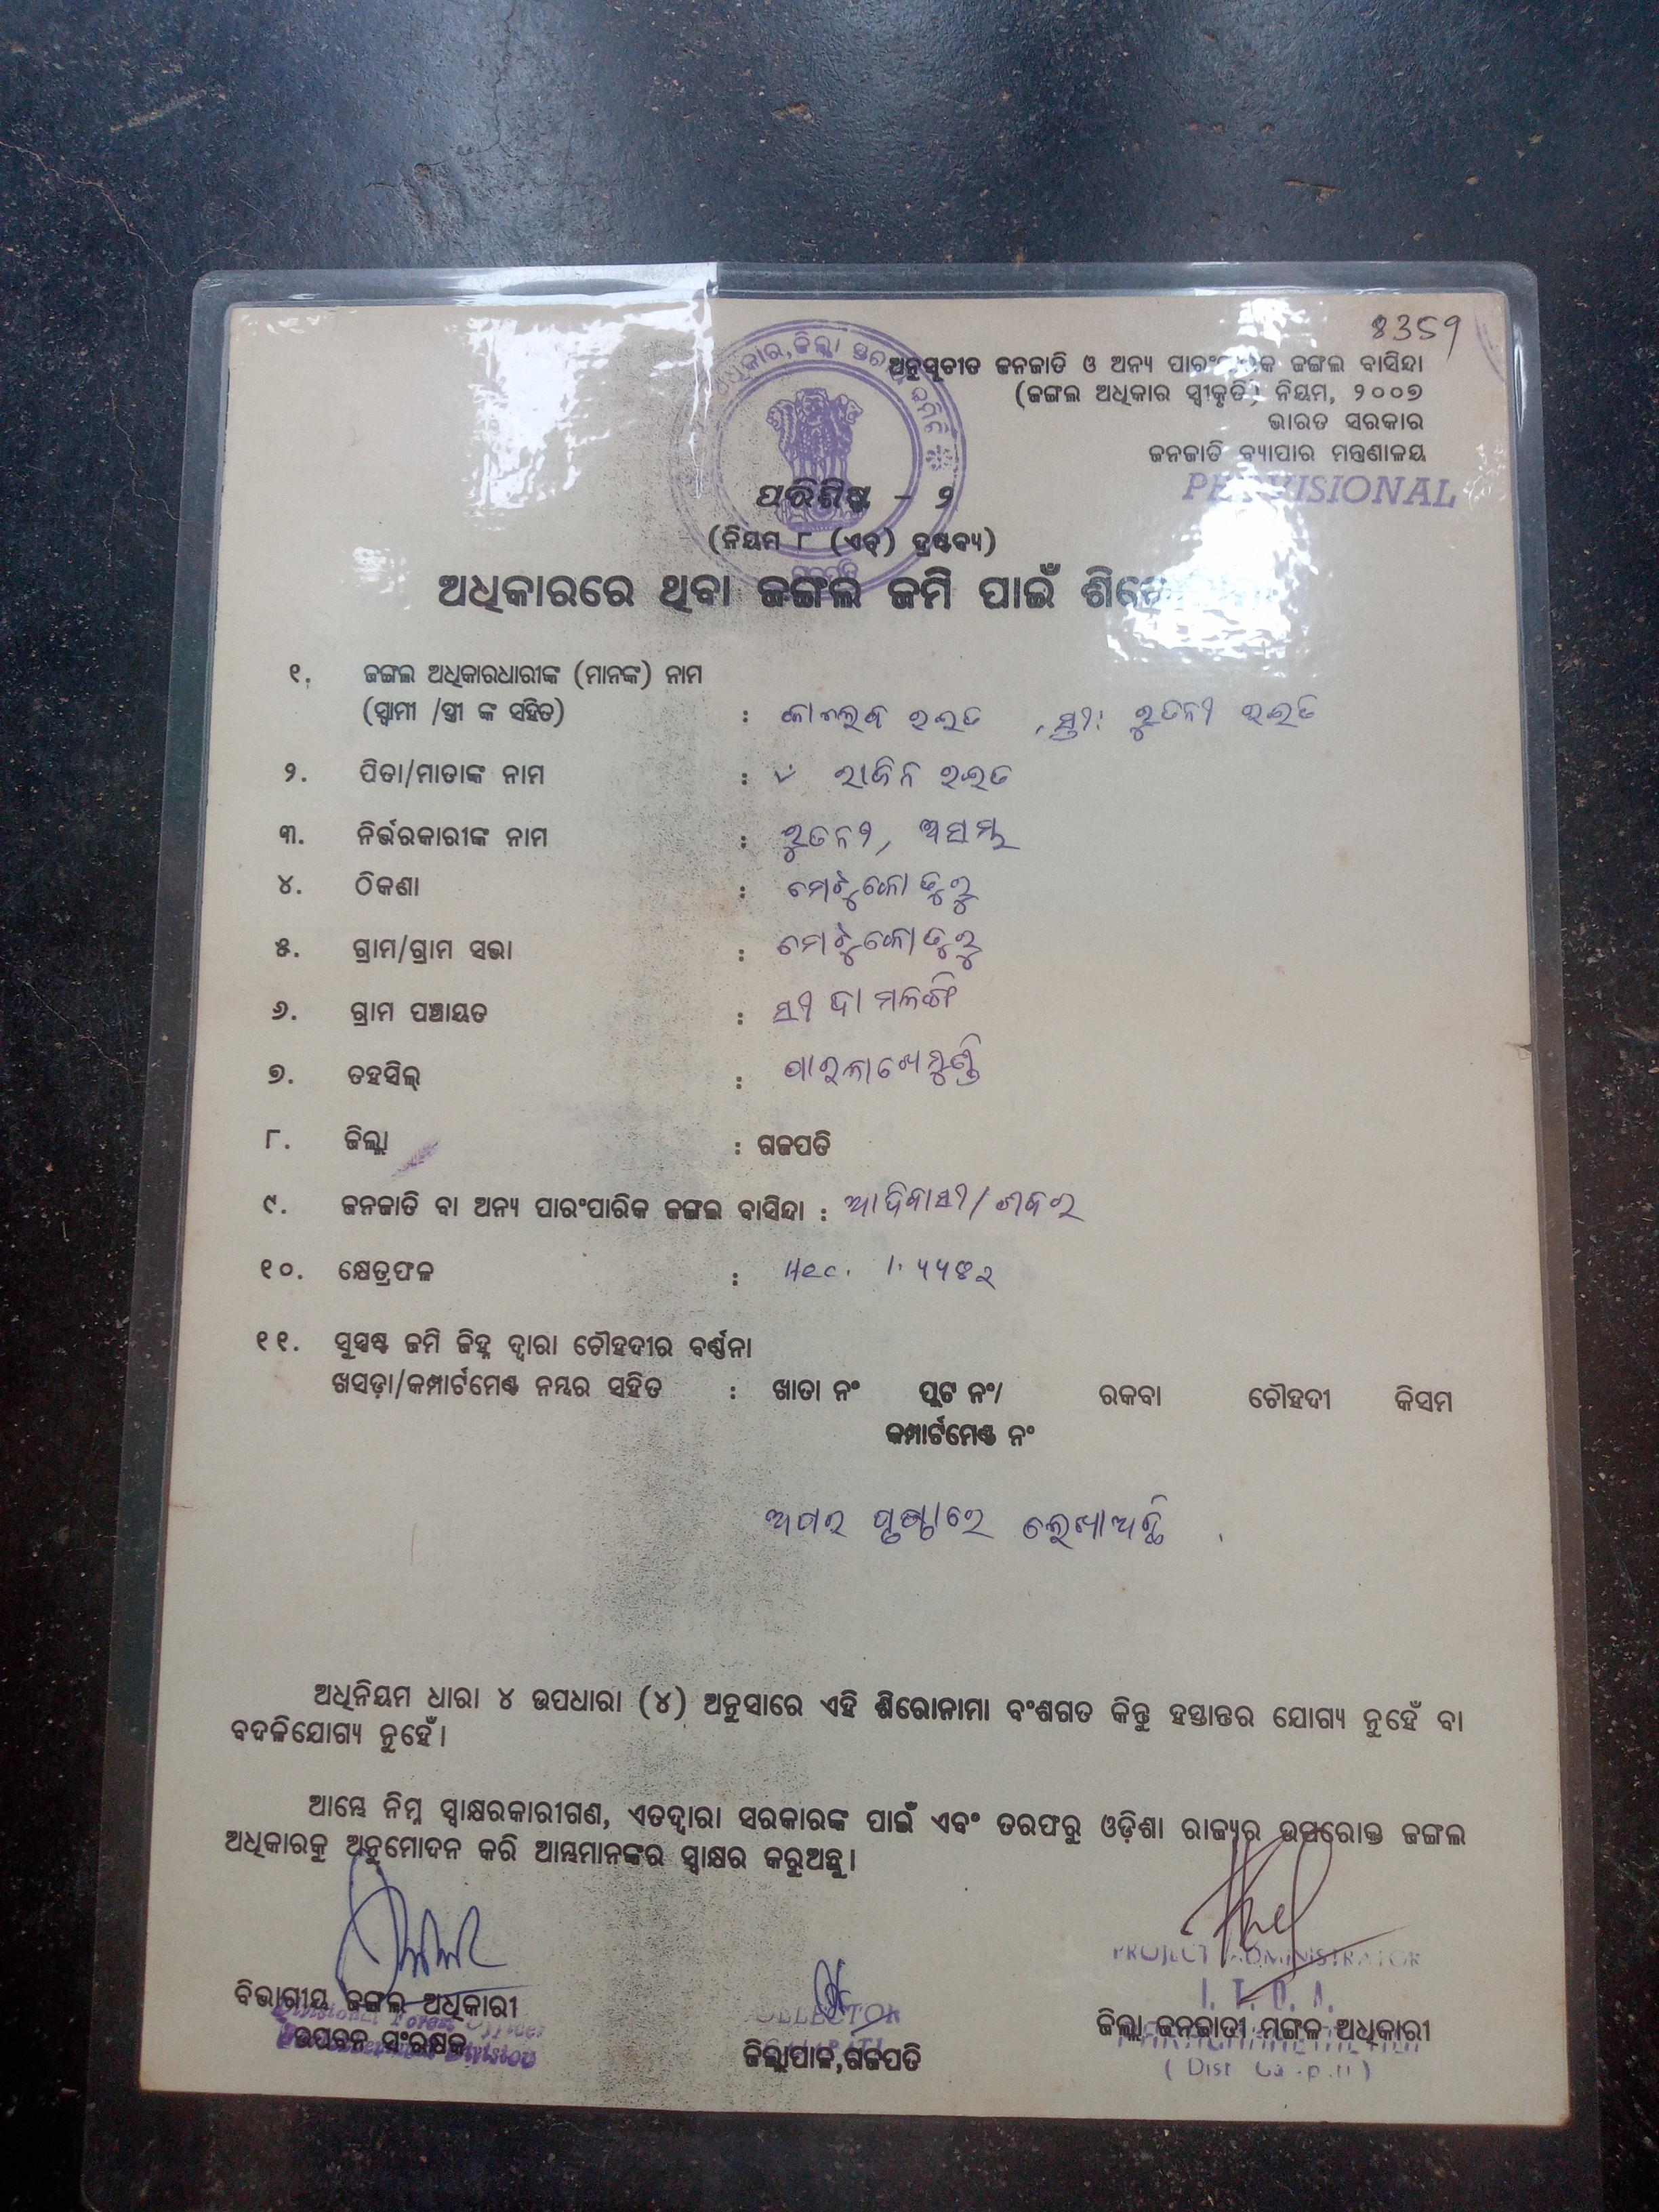 8359
ଅନୁସୂଚୀତ ଜନଜାତି ଓ ଅନ୍ୟ ପାରଂପାରିକ ଜଙ୍ଗଲ ବାସିନ୍ଦା
(ଜଙ୍ଗଲ ଅଧିକାର ସ୍ୱୀକୃତି) ନିୟମ, ୨୦୦୭
ଭାରତ ସରକାର
ଜନଜାତି ବ୍ୟାପାର ମନ୍ତ୍ରଣାଳୟ
PROVISIONAL
ପରିଶିଷ୍ଟ - ୨
(ନିୟମ ୮ (ଏଚ୍) ଦ୍ରଷ୍ଟବ୍ୟ)
ଅଧିକାରରେ ଥିବା ଜଙ୍ଗଲ ଜମି ପାଇଁ
୧. ଜଙ୍ଗଲ ଅଧିକାରଧାରୀଙ୍କ (ମାନଙ୍କ) ନାମ
(ସ୍ୱାମୀ /ସ୍ତ୍ରୀ ଙ୍କ ସହିତ) : କାଲେବ ରଇତ , ସ୍ତ୍ରୀ: ରୁତନୀ ରଇତ
୨. ପିତା/ମାତାଙ୍କ ନାମ : ରାଜିନ ରଇତ
୩. ନିର୍ଭରକାରୀଙ୍କ ନାମ : ରୁତନୀ,
୪. ଠିକଣା :
୫. ଗ୍ରାମ/ଗ୍ରାମ ସଭା :
୬. ଗ୍ରାମ ପଞ୍ଚାୟତ :
୭. ତହସିଲ୍ : ପାରଳାଖେମୁଣ୍ଡି
୮. ଜିଲ୍ଲା : ଗଜପତି
୯. ଜନଜାତି ବା ଅନ୍ୟ ପାରଂପାରିକ ଜଙ୍ଗଲ ବାସିନ୍ଦା : ଆଦିବାସୀ/ ଶବର
୧୦. କ୍ଷେତ୍ରଫଳ : Hec.
୧୧. ସୁସ୍ପଷ୍ଟ ଜମି ଚିହ୍ନ ଦ୍ୱାରା ଚୌହଦୀର ବର୍ଣ୍ଣନା
ଖସଡ଼ା/କମ୍ପାର୍ଟମେଣ୍ଟ ନମ୍ଭର ସହିତ : ଖାତା ନଂ ପ୍ଲଟ ନଂ/ ରକବା ଚୌହଦୀ କିସମ
କମ୍ପାର୍ଟମେଣ୍ଟ ନଂ
ଅପର ପୃଷ୍ଠାରେ ଲେଖାଅଛି .
ଅଧିନିୟମ ଧାରା ୪ ଉପଧାରା (୪) ଅନୁସାରେ ଏହି ଶିରୋନାମା ବଂଶଗତ କିନ୍ତୁ ହସ୍ତାନ୍ତର ଯୋଗ୍ୟ ନୁହେଁ ବା
ବଦଳିଯୋଗ୍ୟ ନୁହେଁ।
ଆମ୍ଭେ ନିମ୍ନ ସ୍ୱାକ୍ଷରକାରୀଗଣ, ଏତଦ୍ୱାରା ସରକାରଙ୍କ ପାଇଁ ଏବଂ ତରଫରୁ ଓଡ଼ିଶା ରାଜ୍ୟର ଉପରୋକ୍ତ ଜଙ୍ଗଲ
ଅଧିକାରକୁ ଅନୁମୋଦନ କରି ଆମ୍ଭମାନଙ୍କର ସ୍ୱାକ୍ଷର କରୁଅଛୁ।
PROJECT ADMINISTRATOR
I. T. D. A.
ବିଭାଗୀୟ ଜଙ୍ଗଲ ଅଧିକାରୀ
Divisional Forest Officer
ଉପବନ ସଂରକ୍ଷକ
Division
COLLECTOR
ଜିଲ୍ଲାପାଳ,ଗଜପତି
ଜିଲ୍ଲା ଜନଜାତୀ ମଙ୍ଗଳ ଅଧିକାରୀ